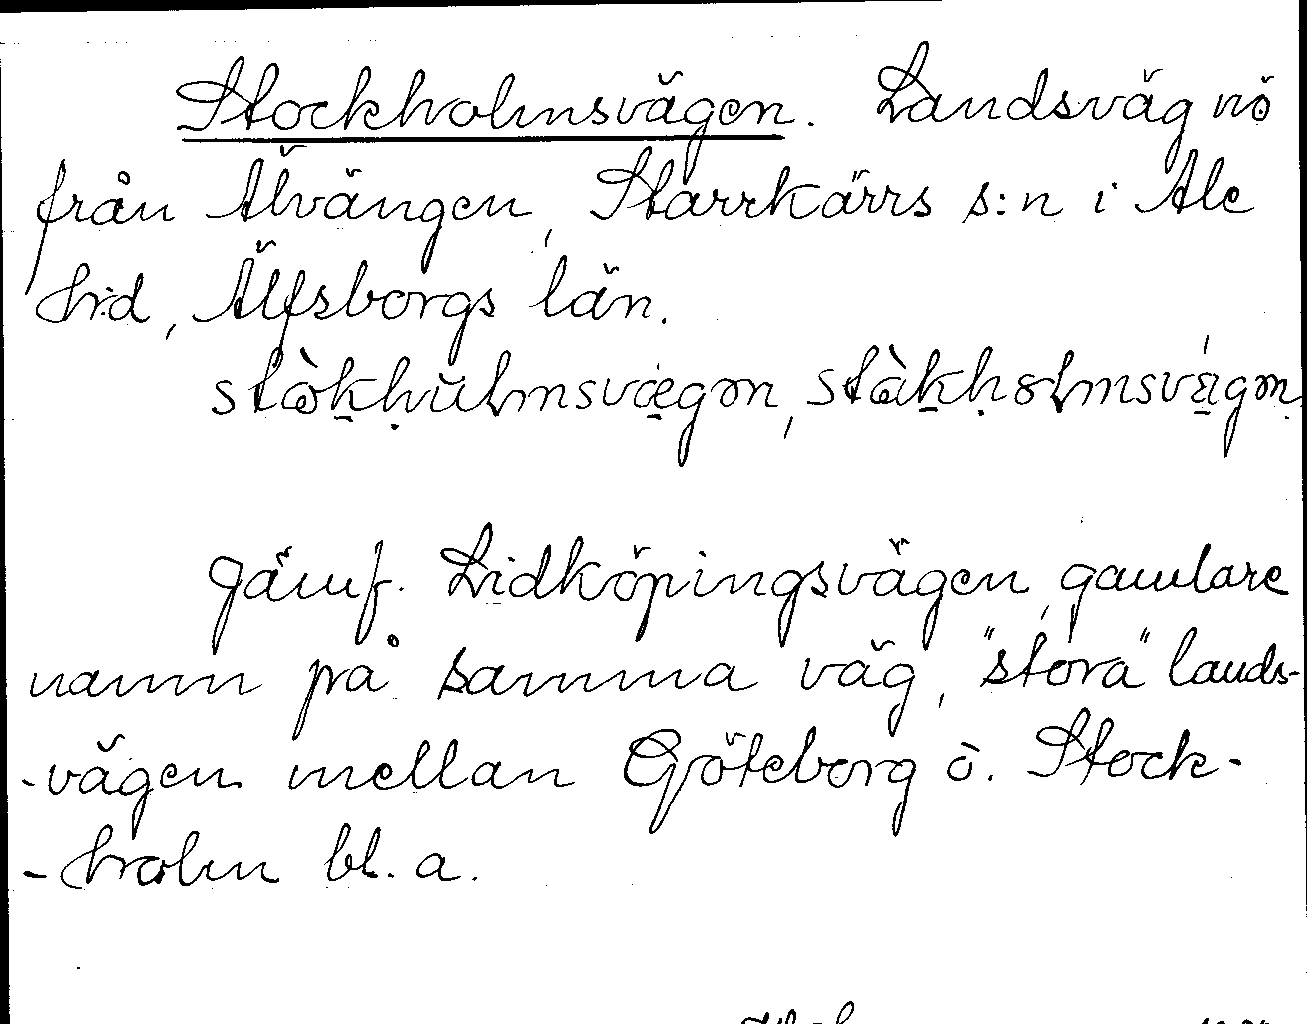 Stockholmsvägen. Landsväg nö
från Älvängen, Starrkärrs s:n i Ale
hd, Älfsborgs län.
stòkhŭlmsvægən, stàkholmsvägən.
Jämf. Lidköpingsvägen, gamlare
namn på samma väg, "stora" lands-
-vägen mellan Göteborg o. Stock-
-holm bl. a.